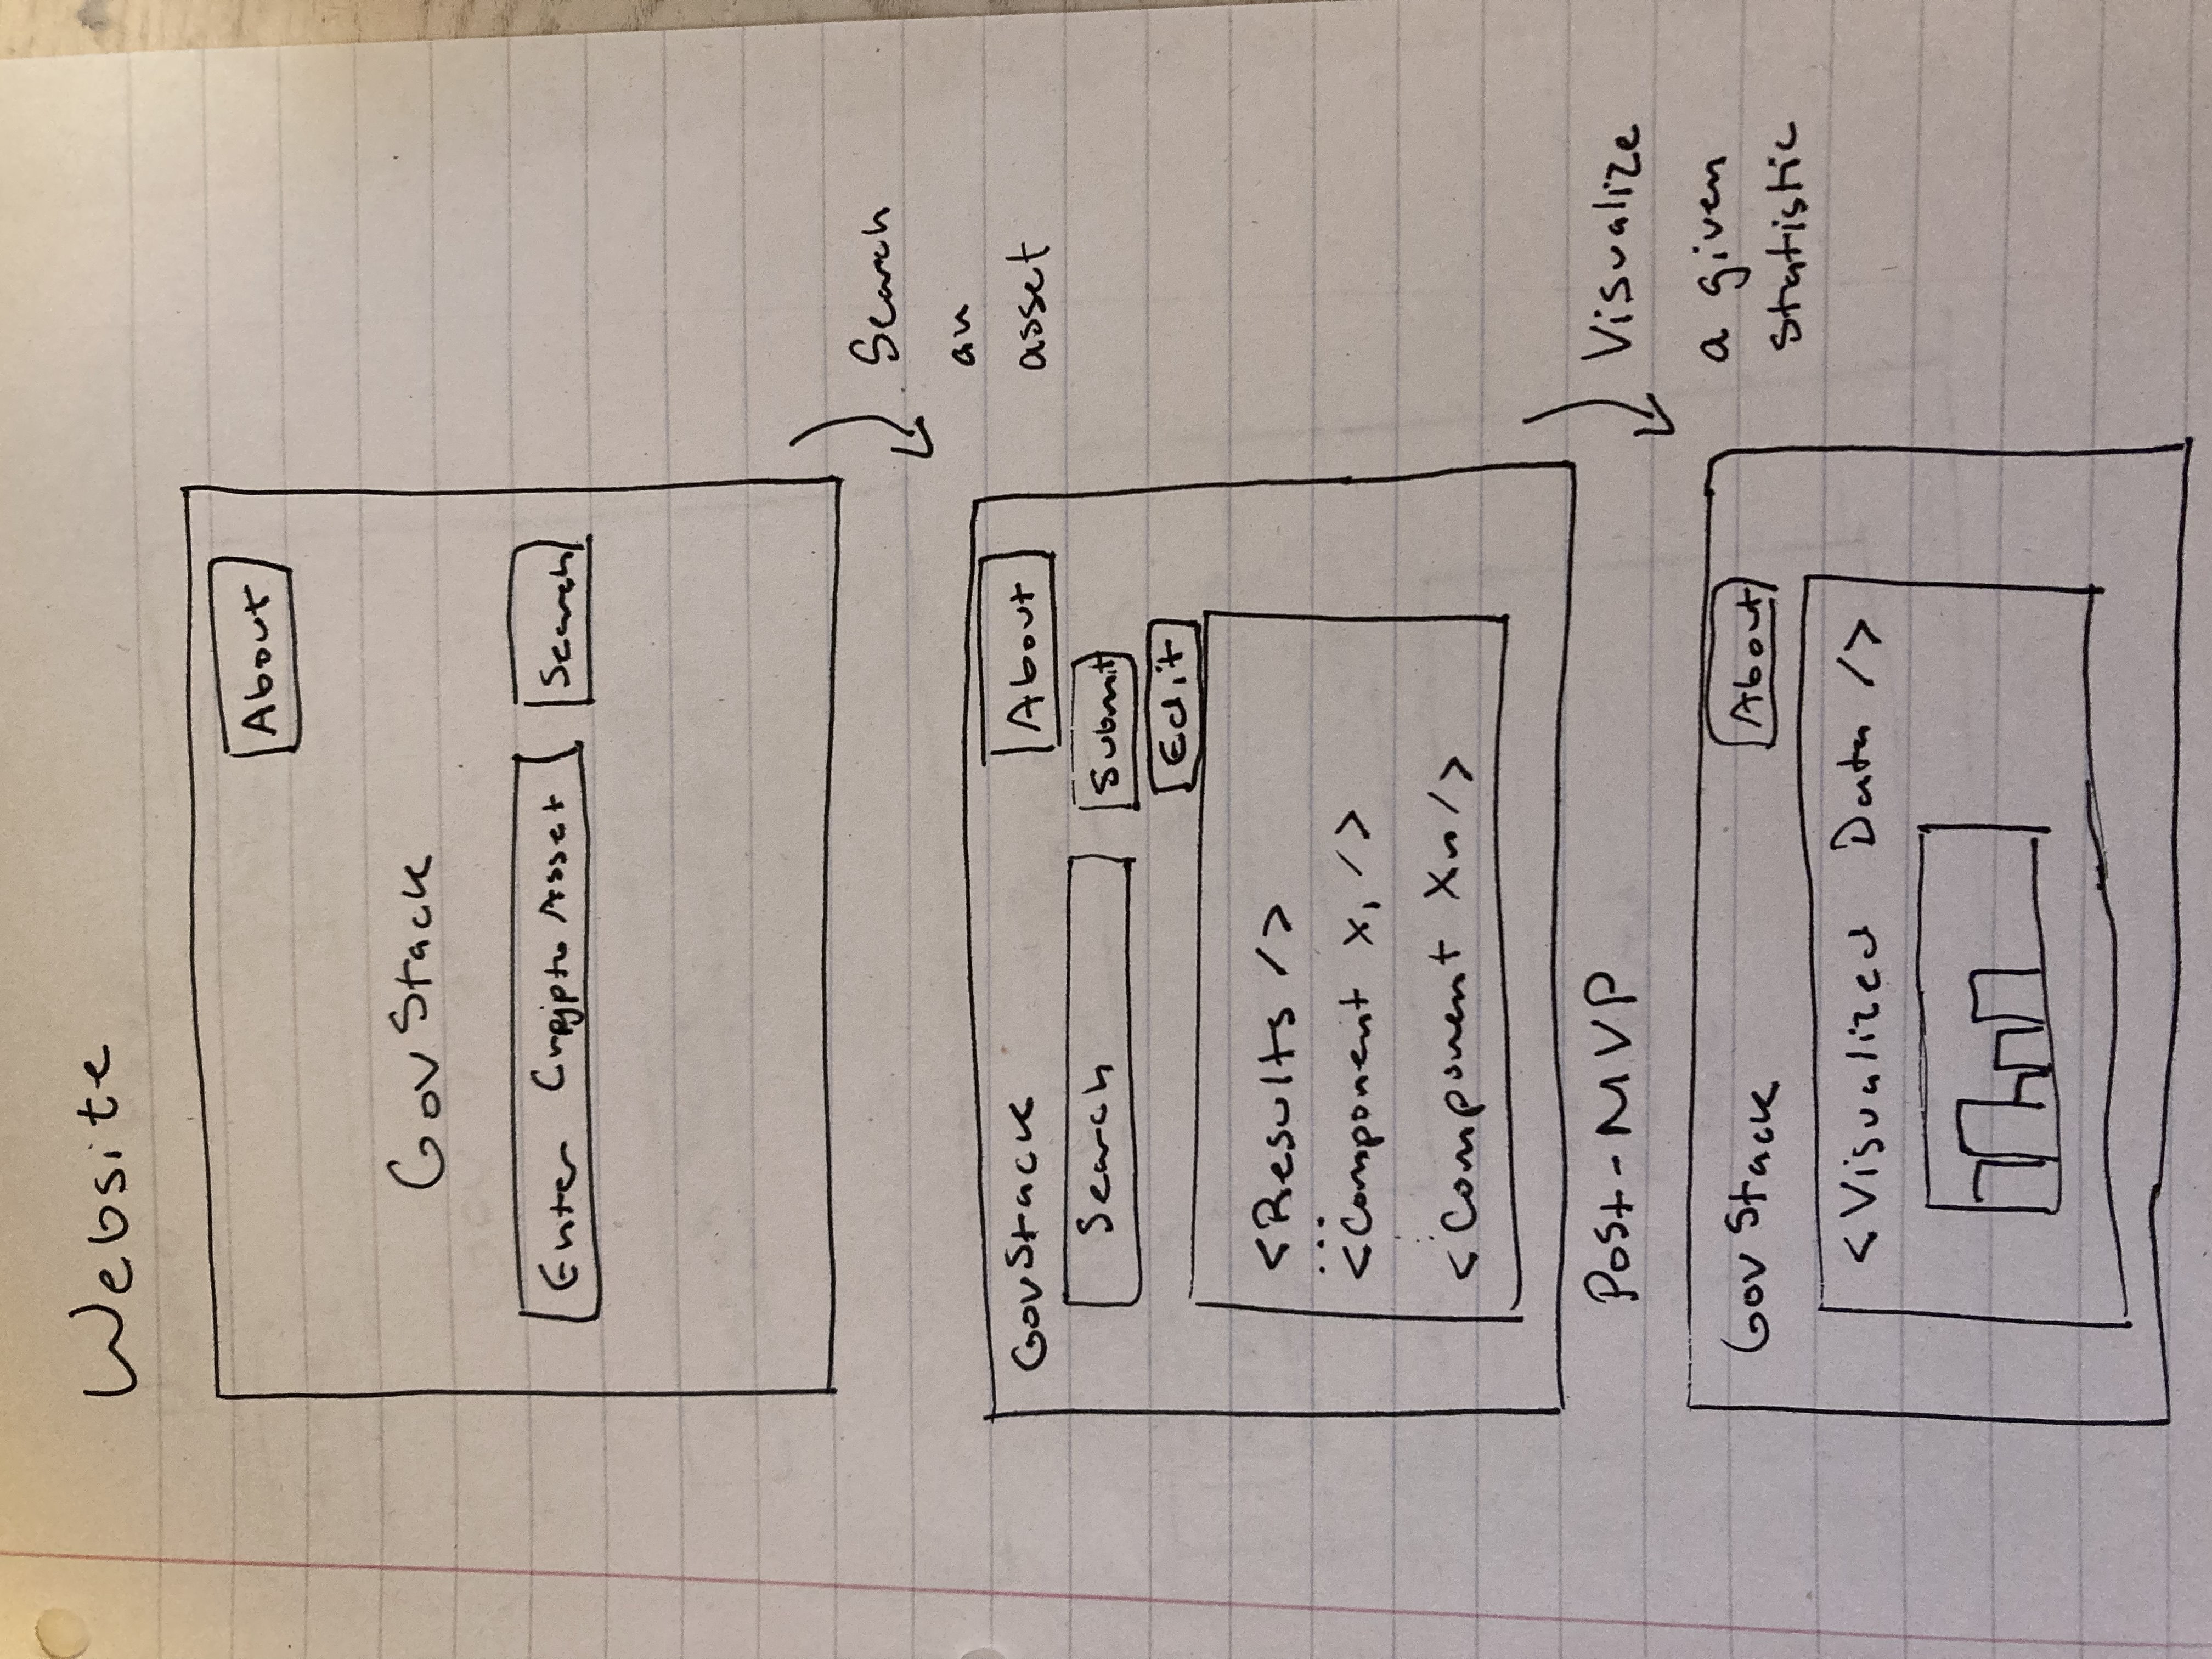 Website
About
GovStack
Enter Crypto Asset
Search
Search
an
asset
GovStack
About
Search
Submit
Edit
<Results />
...
<Component x₁ />
<Component Xn />
Post-MVP
Visualize
a given
statistic
Gov Stack
About
<Visualized Data />